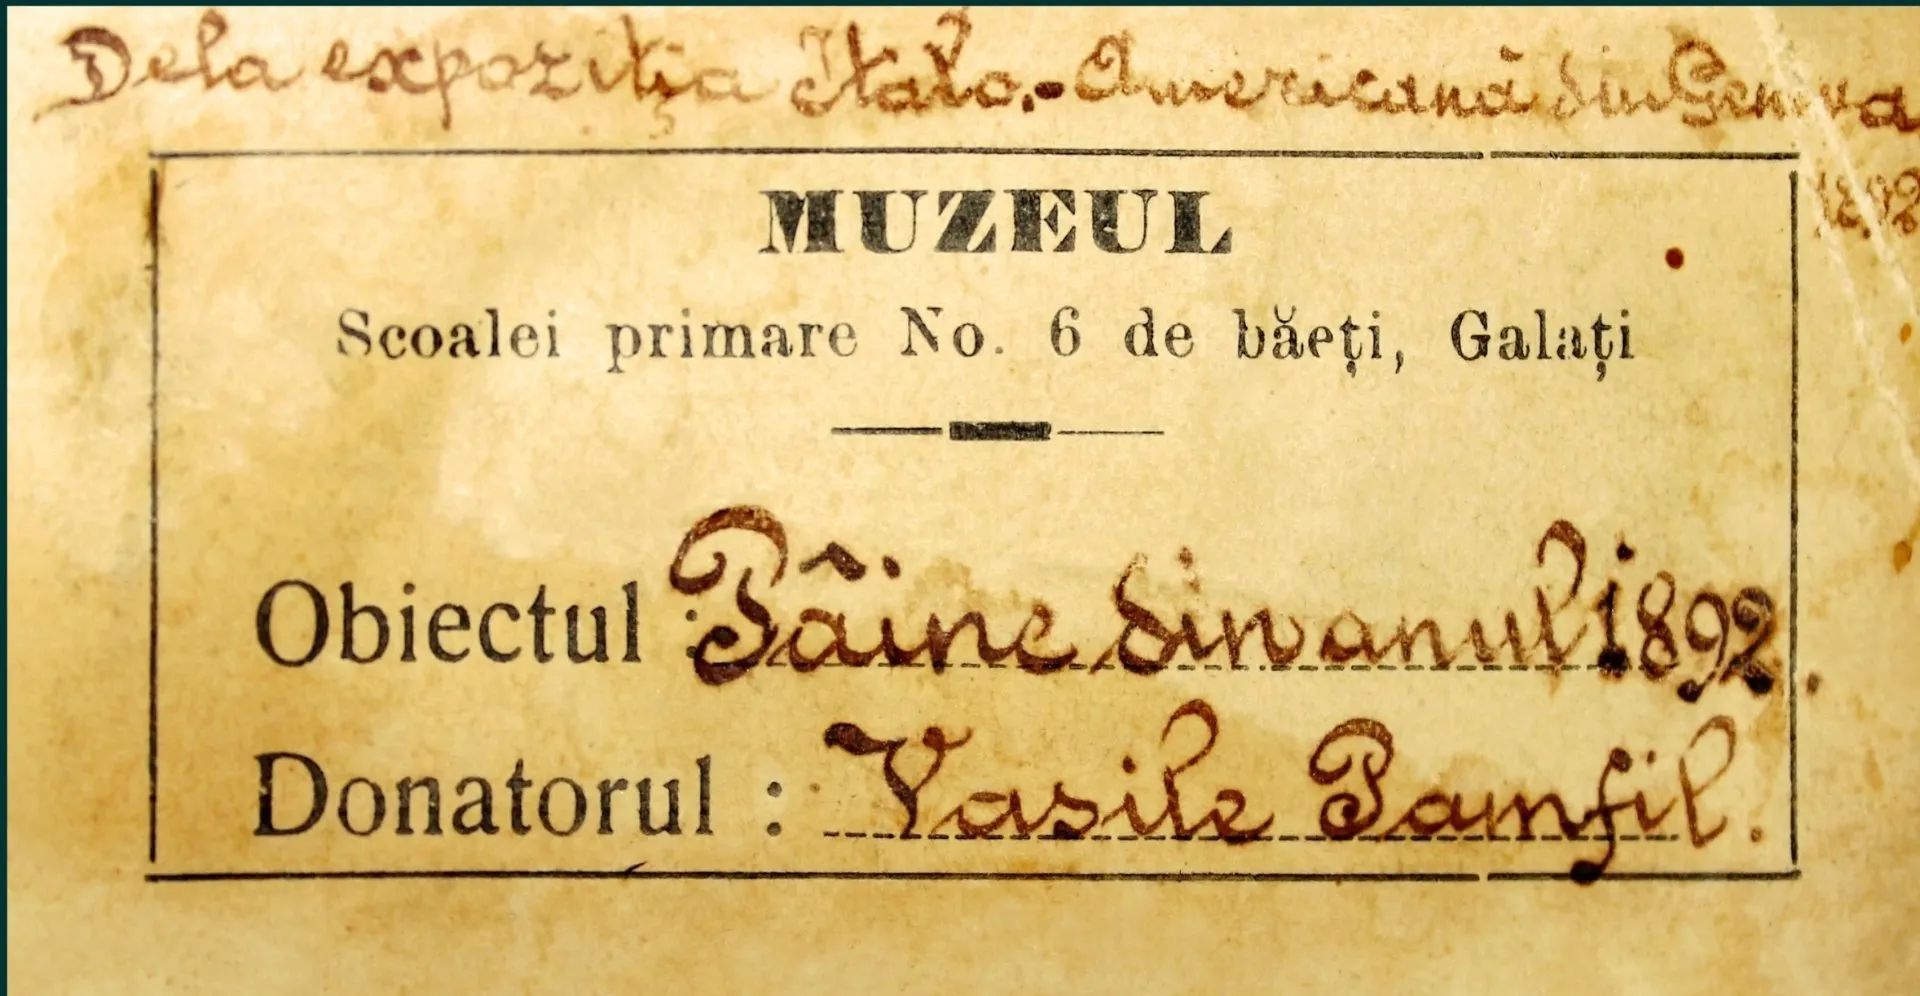 Dela expoziția Italo.-Americană din Genova
1892
MUZEUL
Scoalei primare No. 6 de băeți, Galați
Obiectul : Pâine din anul 1892.
Donatorul : Vasile Pamfil.